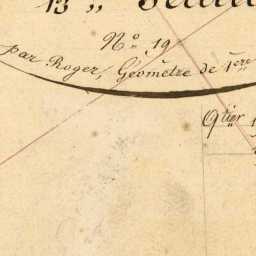 13 „
N° 19
par Roger, Géomètre de 1ère
Qtier